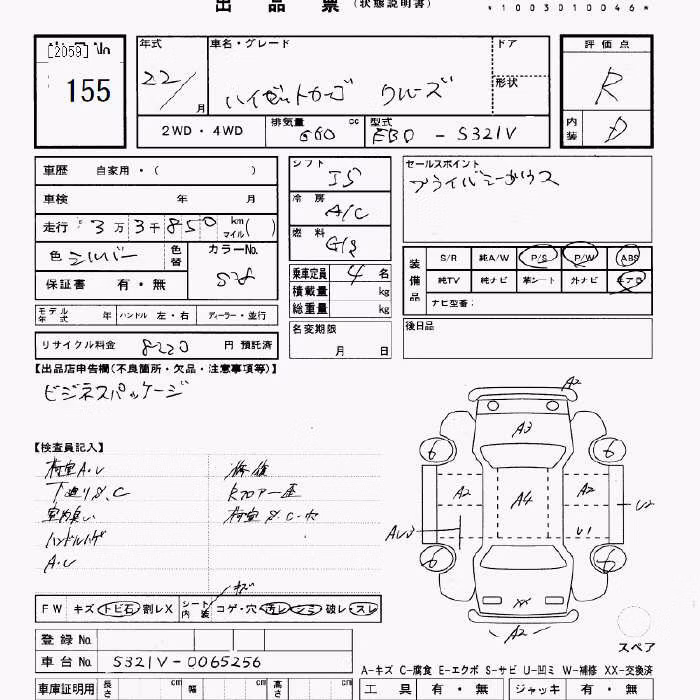 出品票 (状態説明書) *1003010046*
[2059]
155
年式 22/ 月
車名・グレード ハイゼットカーゴ クルーズ
ドア
形状
評価点 R
内装 D
2WD・4WD
排気量 660 cc
型式 EBD - S321V
車歴 自家用・( )
車検 年 月
走行 3万3千850 km マイル( )
色 シルバー 色替
カラーNo. S28
保証書 有・無
モデル年式 年 ハンドル 左・右 ディーラー・並行
リサイクル料金 8220 円 預託済
シフト I5
冷房 A/C
燃料
乗車定員 4 名
積載量 kg
総重量 kg
名変期限 月 日
セールスポイント
プライバシーガラス
装備品 S/R 純A/W P/S P/W ABS
純TV 純ナビ 革シート 外ナビ エアB
ナビ型番:
後日品
【出品店申告欄(不良箇所・欠品・注意事項等)】
ビジネスパッケージ
【検査員記入】
荷室A・U 修復
下廻りS、C
室内臭い 荷室S、C・穴
ハンドルハゲ
A・U
FW キズ トビ石 割レX シート内装 コゲ・穴 汚レ シミ 破レ・スレ
キズ
登録No.
車台No. S321V-0065256
車庫証明用 長さ cm 幅 cm 高さ cm
A2
A3
6 6
A2 A4 A2
U2
AU3
U1
6 6
XX
A2
スペア
A-キズ C-腐食 E-エクボ S-サビ U-凹ミ W-補修 XX-交換済
工具 有・無 ジャッキ 有・無